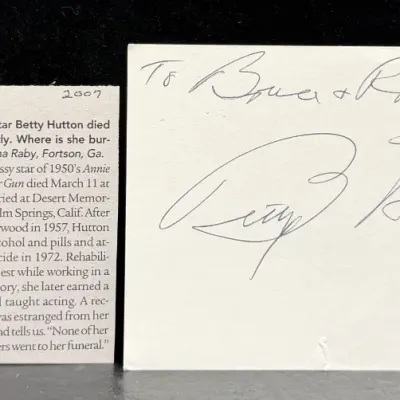 2007
tar Betty Hutton died
tly. Where is she bur-
na Raby, Fortson, Ga.
ssy star of 1950's Annie
r Gun died March 11 at
ried at Desert Memor-
lm Springs, Calif. After
wood in 1957, Hutton
cohol and pills and at-
cide in 1972. Rehabili-
est while working in a
ory, she later earned a
d taught acting. A rec-
was estranged from her
nd tells us. "None of her
ers went to her funeral."
To Bruce + R
Betty